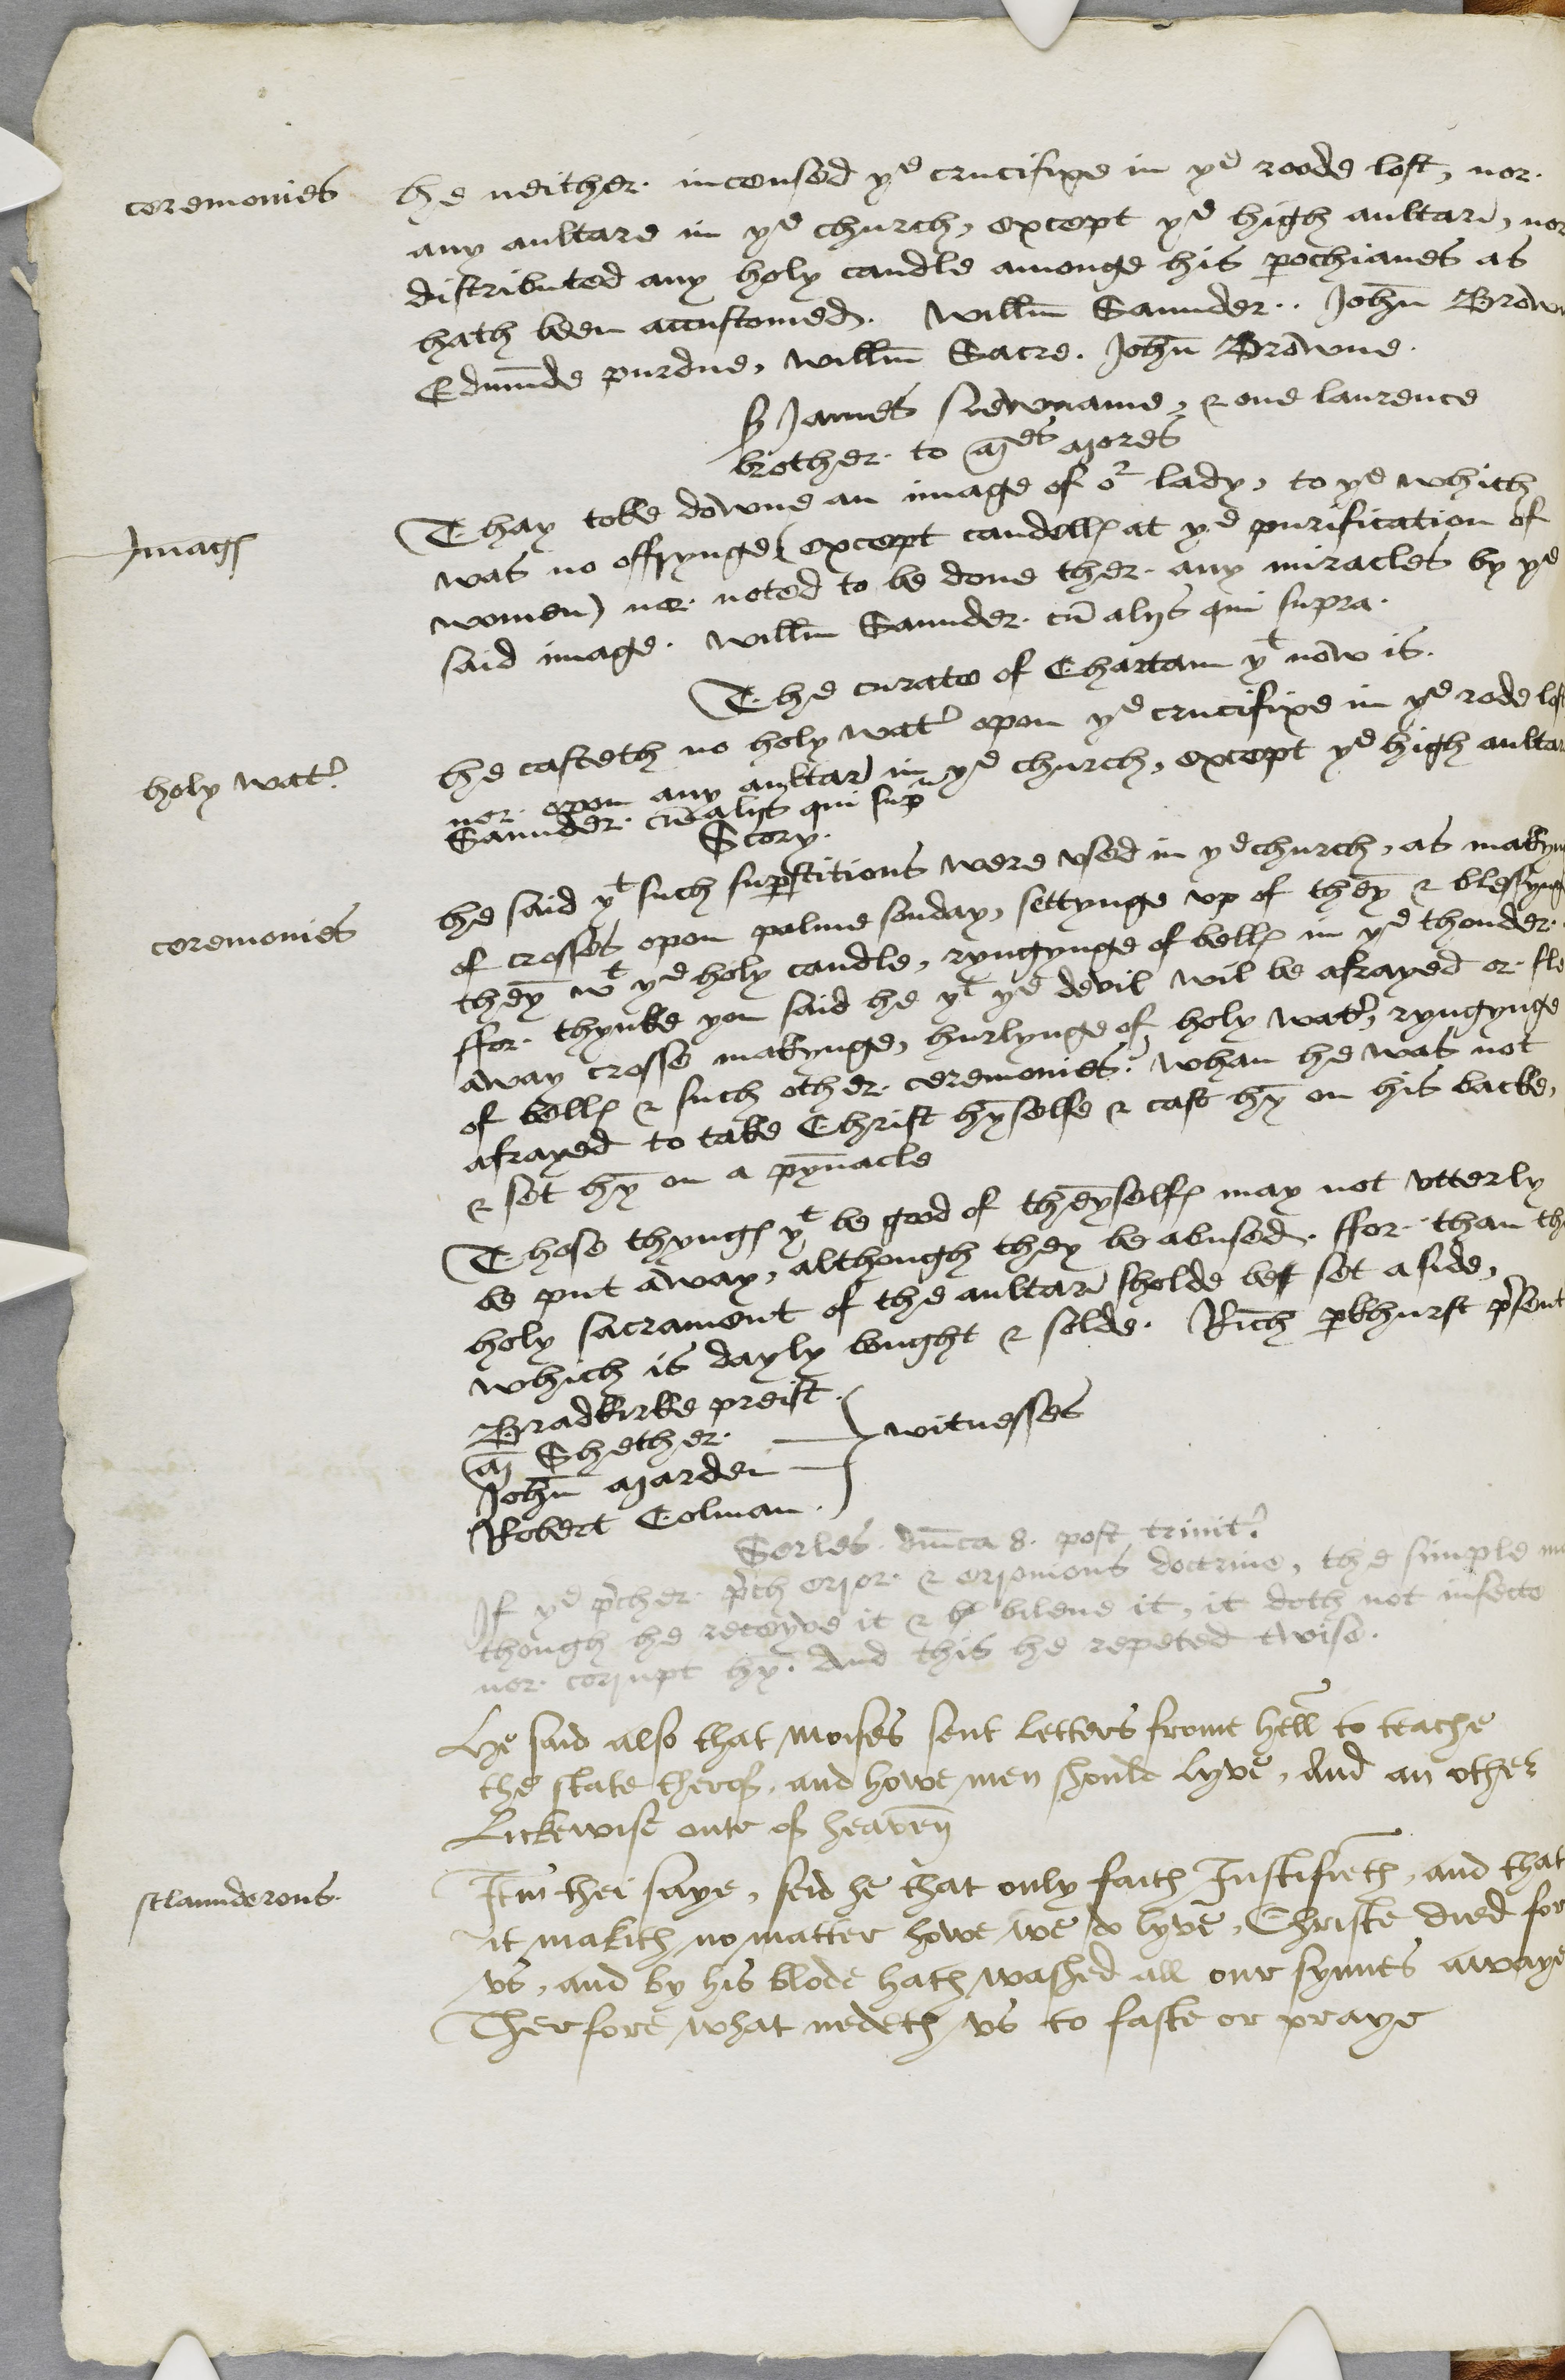 ceremonies
he neither incensed yᵉ crucifixe in yᵉ roode loft, nor
any aultare in yᵉ church, except yᵉ high aultare, nor
distributed any holy candle amonge his pochianes as
hath been accustomed. Willm̄ Saunder. John̄ Brow
Edmūde purdue, willm̄ Sacre. John̄ Browne.
James newname, & one laurence
brother to mores
Imagꝭ
Thay toke downe an image of oʳ lady, to yᵉ which
was no offrynge (except candellꝭ at yᵉ purification of
women) nor noted to be done ther any miracles by yᵉ
said image. Willm̄ Saunder cū alijs qui supra.
The curate of Chartam yᵗ now is.
holy wat'
he casteth no holy wat' opon yᵉ crucifixe in yᵉ rode loft
nor opon any aultare in yᵉ church, except yᵉ high aultar
Saunder cū alijs qui sup
Scory.
ceremonies
he said yᵗ such supstitions were vsed in yᵉ church, as makyn
of crosses opon palme sonday, settynge vp of theȳ & blessynge
theȳ wᵗ yᵉ holy candle, ryngynge of bellꝭ in yᵉ thonder.
ffor thynke you said he yᵗ yᵉ devil wil be afrayed or fle
away crosse makynge, hurlynge of holy wat', ryngynge
of bellꝭ & such other ceremonies? whan he was not
afrayed to take Christ hȳselfe & cast hȳ on his backe,
& set hȳ on a pȳnacle
Those thyngꝭ yᵗ be good of theȳselfꝭ may not vtterly
be put away, although they be abused. ffor than th
holy sacrament of the aultare sholde be set aside,
which is dayly bought & solde. Rich̄ pkhurst p'sent
Bradkirke preist.
Shether
witnesses
John̄ marden
Robert Colman.
Serles. dm̄ca 8. post trinit'.
If yᵉ p'cher p'ch error & erronious doctrine, the simple m
though he receyve it & bileue it, it doth not infecte
nor corrupt hȳ. And this he repeted twise.
He said also that Moises sent letters frome hell to teache
the state therof, and howe men should lyve, And an other
Lickewise oute of heaven
sclaunderous.
Itm̄ thei saye, seid he that only faith Justifieth, and that
it makith no matter howe we do lyve, Christe died for
vs, and by his blode hath washed all our synnes awaye
Therfore what nedeth vs to faste or praye